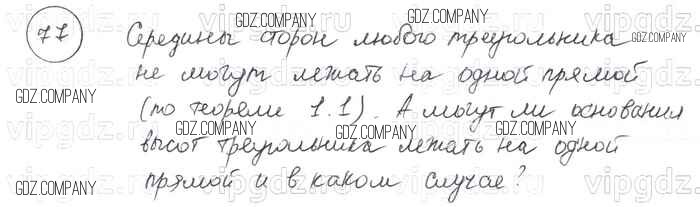 77
Середины сторон любого треугольника
не могут лежать на одной прямой
(по теореме 1.1). А могут ли основания
высот треугольника лежать на одной
прямой и в каком случае?
GDZ.COMPANY
GDZ.COMPANY
GDZ.COMPANY
GDZ.COMPANY
GDZ.COMPANY
GDZ.COMPANY
GDZ.COMPANY
GDZ.COMPANY
GDZ.COMPANY
GDZ.COMPANY